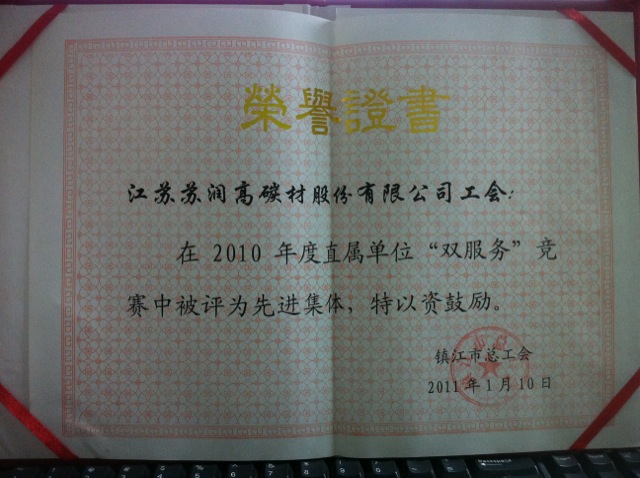 榮譽證書
江苏苏润高碳材股份有限公司工会：
在 2010 年度直属单位“双服务”竞
赛中被评为先进集体，特以资鼓励。
镇江市总工会
2011 年 1 月 10 日